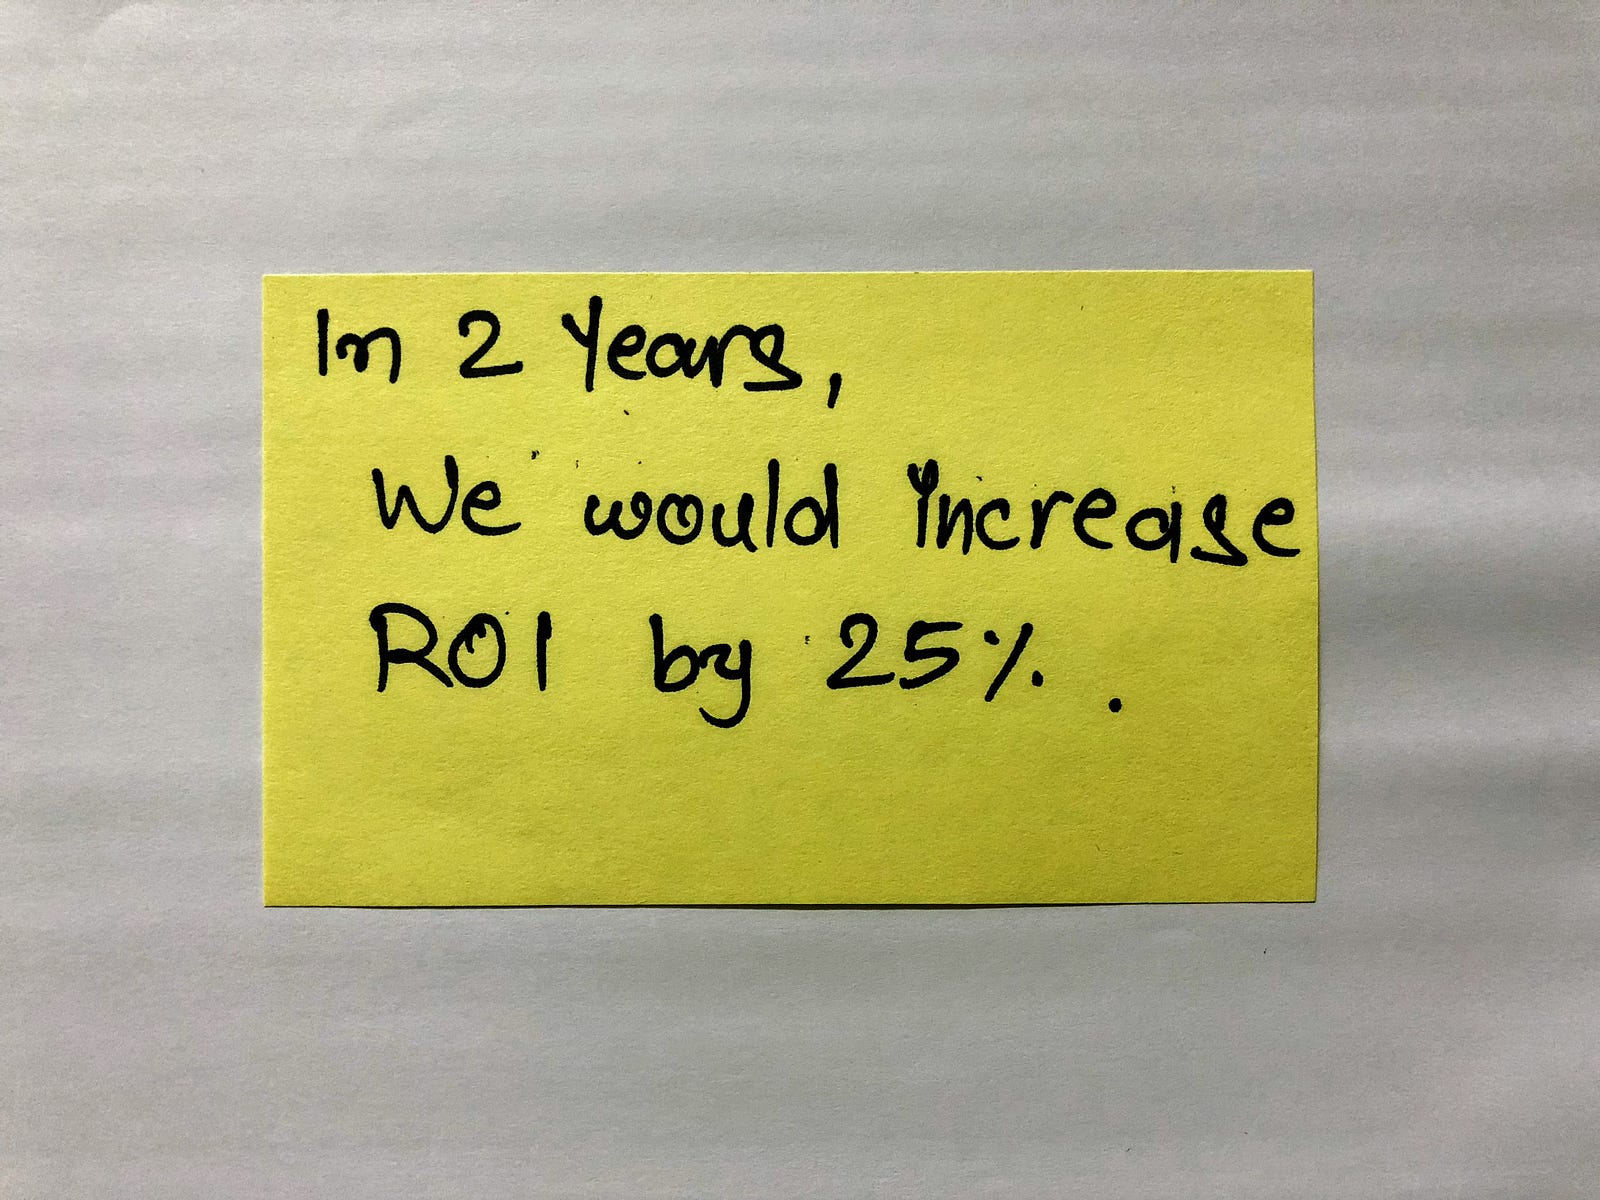 In 2 Years,
We would increase
ROI by 25% .